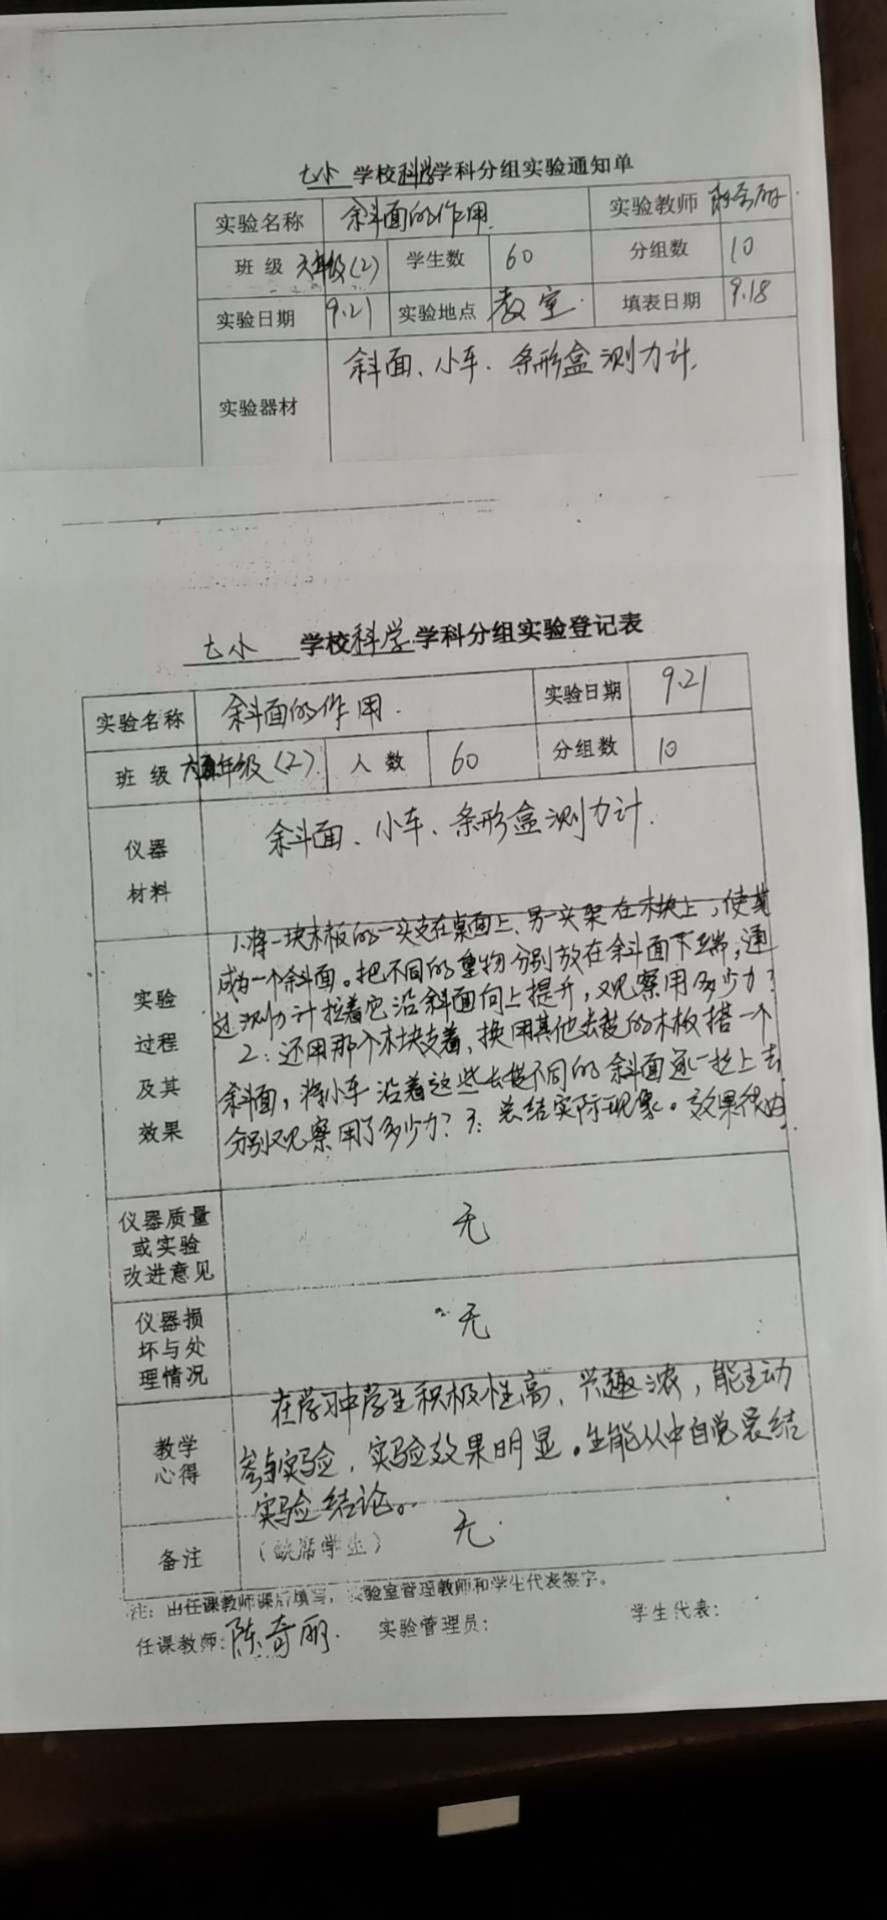 七小 学校科学学科分组实验通知单
实验名称 斜面的作用 实验教师
班级 六年级(2) 学生数 60 分组数 10
实验日期 9.21 实验地点 教室 填表日期 9.18
实验器材 斜面、小车、条形盒测力计
七小 学校科学学科分组实验登记表
实验名称 斜面的作用 实验日期 9.21
班级 六年级(2) 人数 60 分组数 10
仪器
材料
斜面、小车、条形盒测力计
实验
过程
及其
效果
1.将一块木板的一头支在桌面上、另一头架在木块上,使其
成为一个斜面。把不同的重物分别放在斜面下端,通
过测力计拉着它沿斜面向上提升,观察用多少力?
2:还用那个木块支着,换用其他长度的木板搭一个
斜面,将小车沿着这些长短不同的斜面逐一拉上去
分别观察用了多少力?3:总结实际现象。效果很好
仪器质量
或实验
改进意见
无
仪器损
坏与处
理情况
无
教学
心得
在学习中学生积极性高、兴趣浓,能主动
参与实验,实验效果明显。生能从中自觉总结
实验结论。
备注 (缺席学生) 无
注:由任课教师课后填写,实验室管理教师和学生代表签字。
任课教师:陈奇丽 实验管理员: 学生代表: